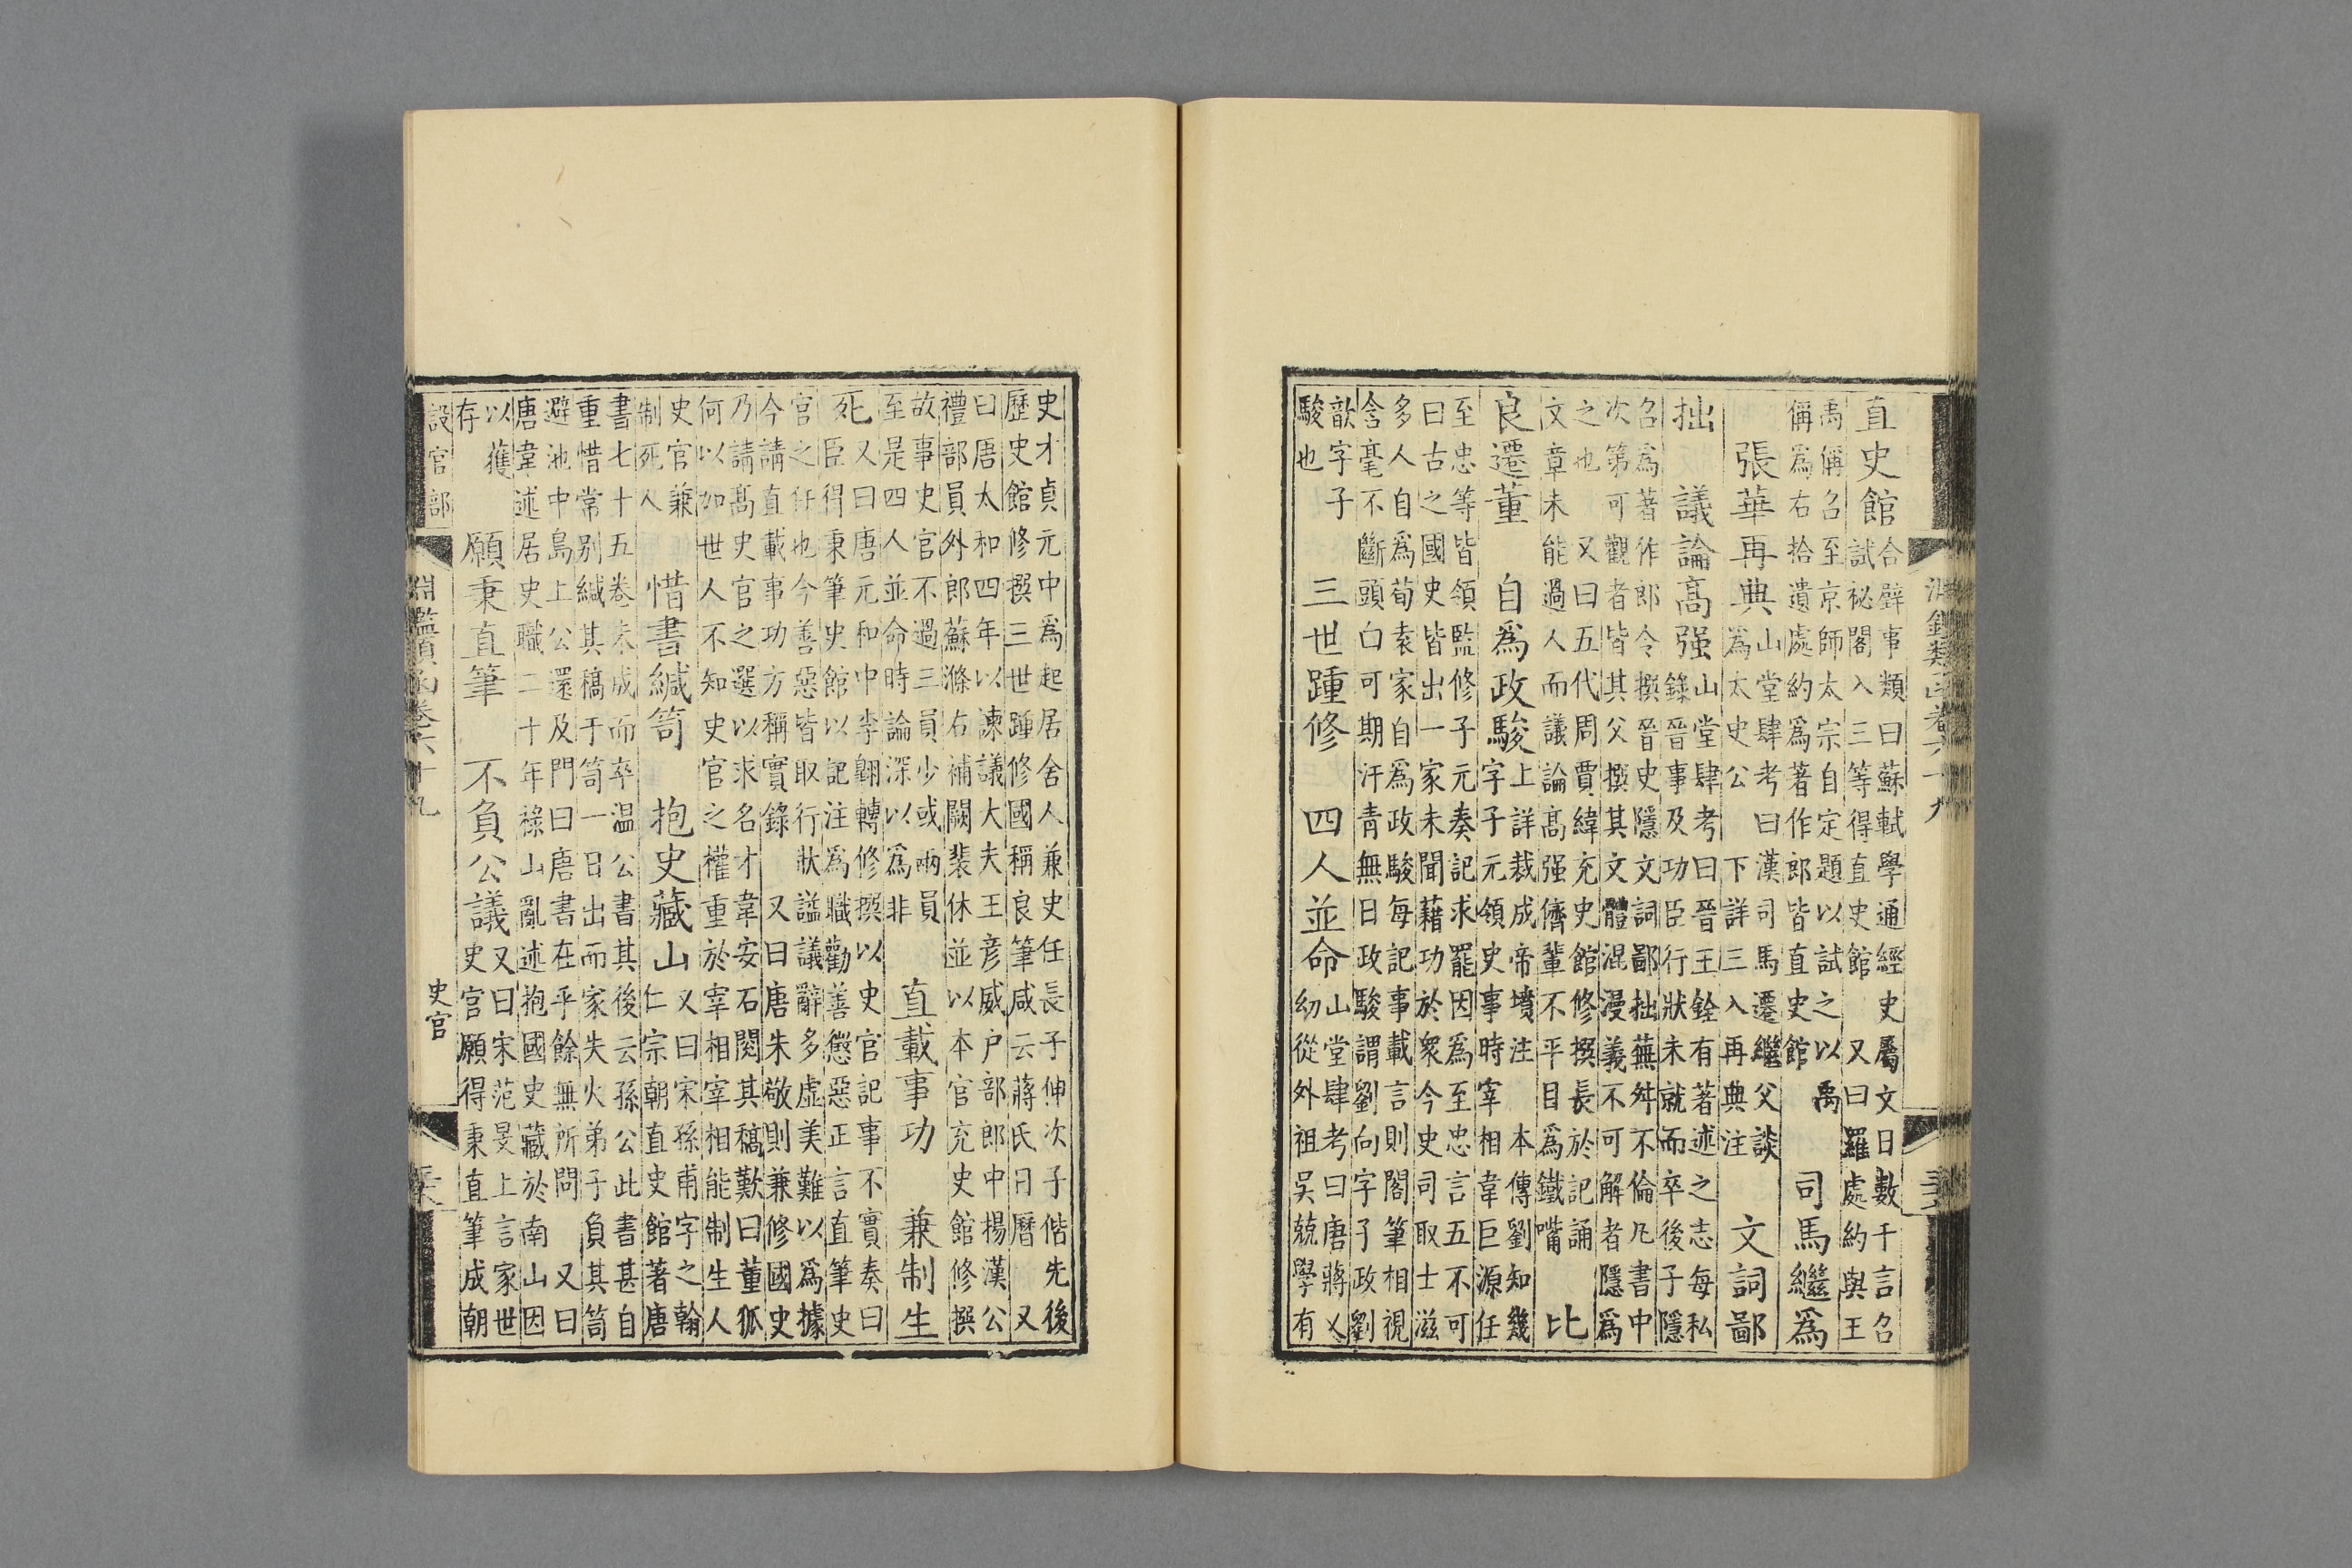 淵鑑類函卷六十九
直史館
合璧事類曰蘇軾學通經史屬文日數千言召
試祕閣入三等得直史館　又曰羅處約與王
禹偁召至京師太宗自定題以試之以禹
偁爲右拾遺處約爲著作郎皆直史館
司馬繼爲
張華再典
山堂肆考曰漢司馬遷繼父談
爲太史公　下詳三入再典注
文詞鄙
拙　議論高强
山堂肆考曰晉王銓有著述之志每私
錄晉事及功臣行狀未就而卒後子隱
召爲著作郎令撰晉史隱文詞鄙拙蕪舛不倫凡書中
次第可觀者皆其父撰其文體混漫義不可解者隱爲
之也　又曰五代周賈緯充史館修撰長於記誦
文章未能過人而議論高强儕輩不平目爲鐵嘴
比
良遷董　自爲政駿
上詳裁成帝墳注　本傳劉知幾
字子元領史事時宰相韋巨源任
至忠等皆領監修子元奏記求罷因爲至忠言五不可
曰古之國史皆出一家未聞藉功於衆今史司取士滋
多人自爲荀袁家自爲政駿每記事載言則閣筆相視
含毫不斷頭白可期汗青無日政駿謂劉向字子政劉
歆字子
駿也
三世踵修　四人並命
山堂肆考曰唐蔣乂
幼從外祖吳兢學有
史才貞元中爲起居舍人兼史任長子伸次子偕先後
歷史館修撰三世踵修國稱良筆咸云蔣氏日曆　又
曰唐太和四年以諫議大夫王彥威户部郎中揚漢公
禮部員外郎蘇滌右補闕裴休並以本官充史館修撰
故事史官不過三員少或兩員
至是四人並命時論深以爲非
直載事功　兼制生
死
又曰唐元和中李翺轉修撰以史官記事不實奏曰
臣得秉筆史館以記注爲職勸善懲惡正言直筆史
官之任也今善惡皆取行狀謚議辭多虛美難以爲據
今請直載事功方稱實錄　又曰唐朱敬則兼修國史
乃請髙史官之選以求名才韋安石閱其稿歎曰董狐
何以加世人不知史官之權重於宰相宰相能制生人
史官兼
制死人
惜書緘笥　抱史藏山
又曰宋孫甫字之翰
仁宗朝直史館著唐
書七十五卷未成而卒温公書其後云孫公此書甚自
重惜常别緘其稿于笥一日出而家失火弟子負其笥
避池中島上公還及門曰唐書在乎餘無所問　又曰
唐韋述居史職二十年祿山亂述抱國史藏於南山因
以獲
存
願秉直筆　不負公議
又曰宋范旻上言家世
史官願得秉直筆成朝
設官部
淵鑑類函卷六十九
史官